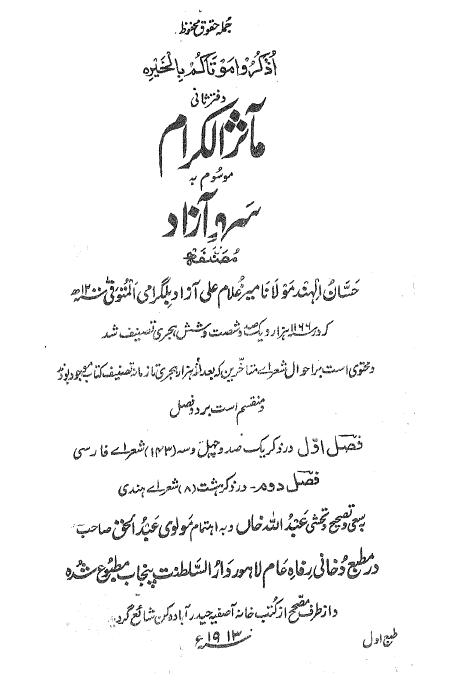 جملہ حقوق محفوظ
اُذْکُرُوا مَوْتَاکُمْ بِالْخَیْرِہ
دفتر ثانی
مآثر الکرام
موسوم بہ
سرو آزاد
مصنفہ
حسّان الہند مولانا میر غلام علی آزاد بلگرامی المتوفی سنہ ۱۲۰۰ھ
کہ در سنہ ۱۱۶۶ ہزار و یک صد و شصت و شش ہجری تصنیف شد
و محتوی است بر احوال شعراے متاخرین کہ بعد از ہزار ہجری تا زمانہ تصنیف کتاب موجود بودند
و منقسم است بر دو فصل
فصل اوّل در ذکر یک صد و چہل و سہ (۱۴۳) شعراے فارسی
فصل دوم - در ذکر ہشت (۸) شعراے ہندی
بسعی و تصحیح و تحشی عبد اللہ خاں و بہ اہتمام مولوی عبد الحق صاحب
در مطبع دخانی رفاہ عام لاہور دار السلطنت پنجاب مطبوع شدہ
و از طرف مصحح از کتب خانہ آصفیہ حیدرآباد دکن شائع گردید
طبع اول
سنہ ۱۹۱۳ء